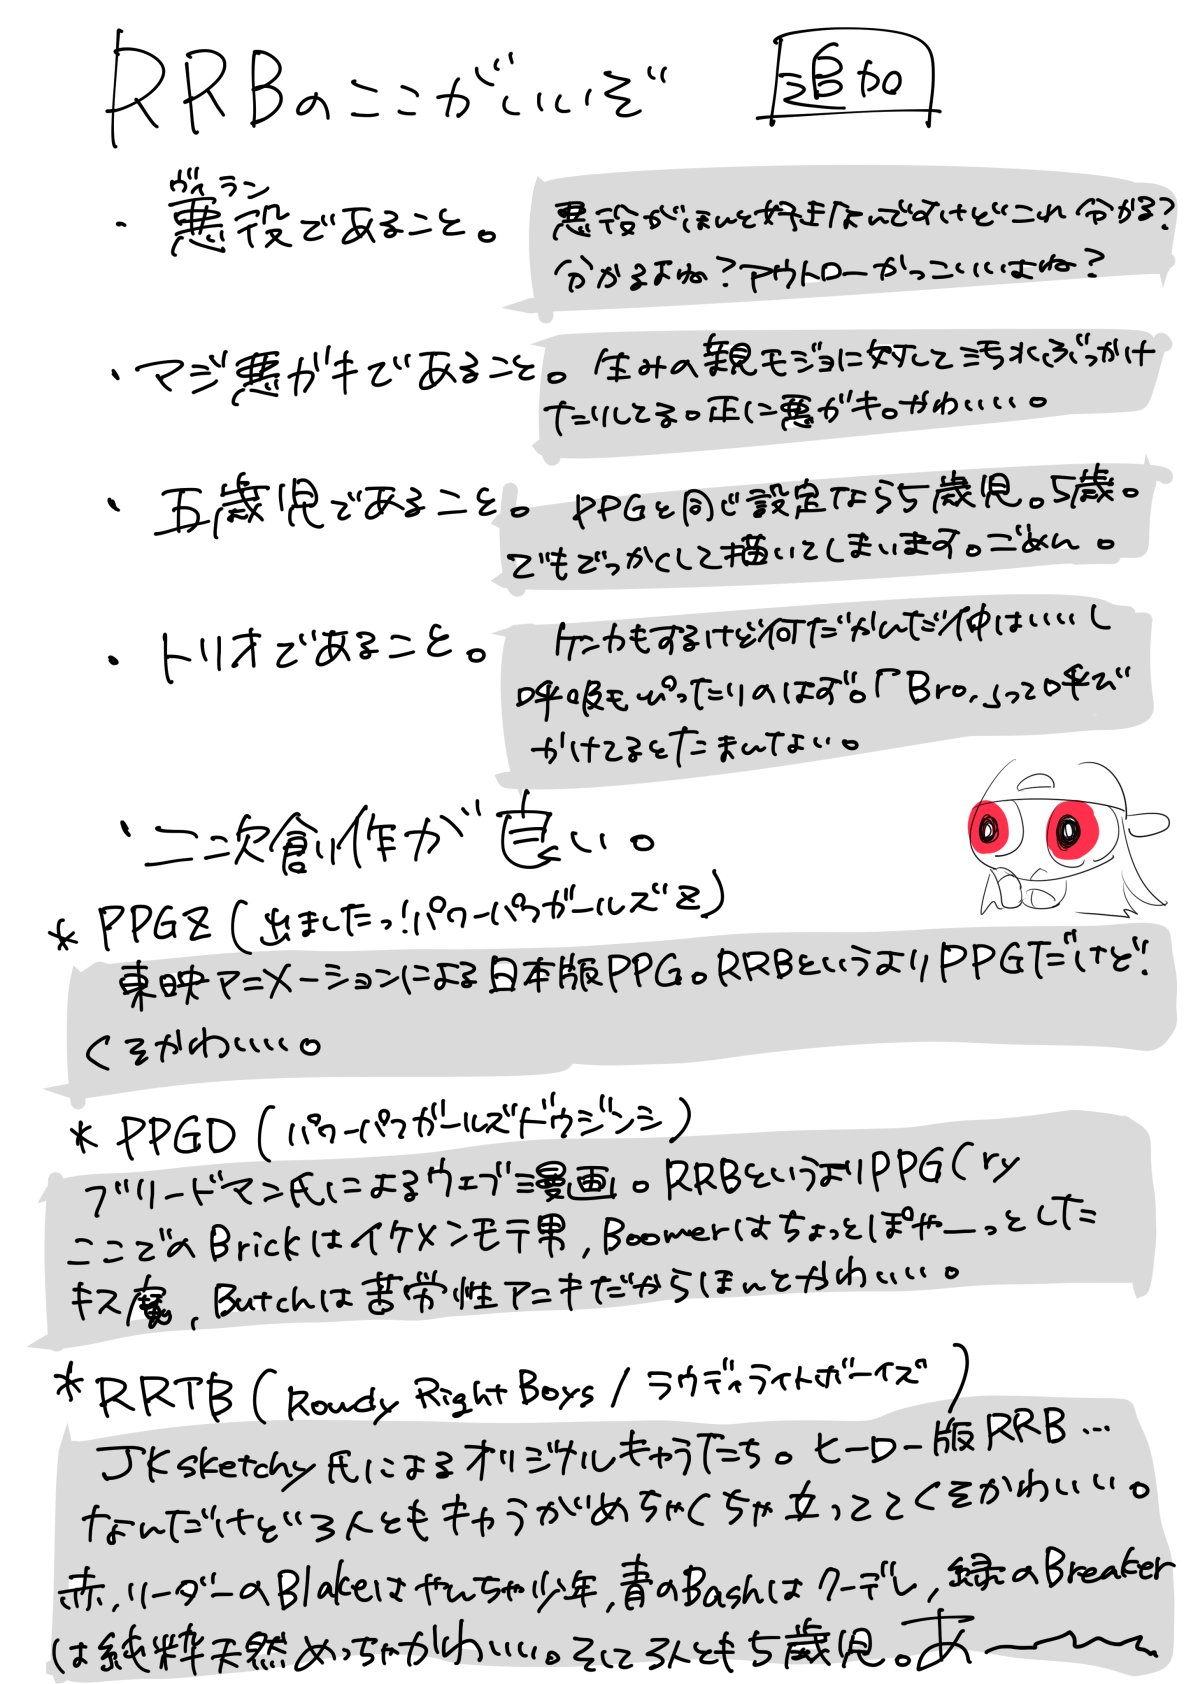 RRBのここがいいぞ 追加
ヴィラン
・悪役であること。
悪役がほんと好きなんですけどこれ分かる?
分かるよね?アウトローかっこいいよね?
・マジ悪ガキであること。
生みの親モジョに対して汚水ぶっかけ
たりしてる。正に悪ガキ。かわいい。
・五歳児であること。
PPGと同じ設定なら5歳児。5歳。
でもでっかくして描いてしまいます。ごめん。
・トリオであること。
ケンカもするけど何だかんだ仲はいいし
呼吸もぴったりのはず。「Bro.」って呼び
かけてるとたまんない。
・二次創作が良い。
* PPGZ(出ましたっ!パワーパフガールズZ)
東映アニメーションによる日本版PPG。RRBというよりPPGだけど!
くそかわいい。
* PPGD(パワーパフガールズドウジンシ)
ブリードマン氏によるウェブ漫画。RRBというよりPPG(ry
ここでのBrickはイケメンモテ男,Boomerはちょっとぽやーっとした
キス魔,Butchは苦労性アニキだからほんとかわいい。
* RRTB(Rowdy Right Boys/ラウディライトボーイズ)
JKsketchy氏によるオリジナルキャラたち。ヒーロー版RRB…
なんだけど3人ともキャラがめちゃくちゃ立っててくそかわいい。
赤,リーダーのBlakeはやんちゃ少年,青のBashはクーデレ,緑のBreaker
は純粋天然めっちゃかわいい。そして3人とも5歳児。あー〜〜